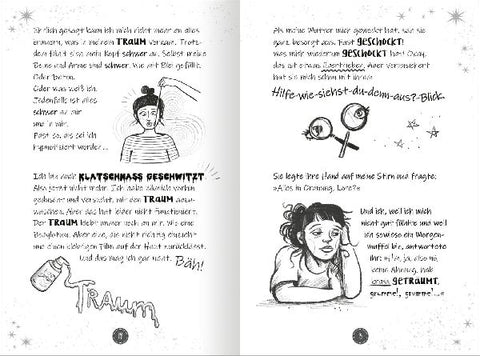 Ehrlich gesagt kann ich mich nicht mehr an alles
erinnern, was in meinem TRAUM vorkam. Trotz-
dem fühlt sich mein Kopf schwer an. Selbst meine
Beine und Arme sind schwer. Wie mit Blei gefüllt.
Oder Beton.
Oder was weiß ich.
Jedenfalls ist alles
schwer an mir
und in mir.
Fast so, als sei ich
hypnotisiert worden ...
Ich bin auch KLATSCHNASS GESCHWITZT.
Also jetzt nicht mehr. Ich habe nämlich vorhin
geduscht und versucht, mir den TRAUM abzu-
waschen. Aber das hat leider nicht funktioniert.
Der TRAUM klebt immer noch an mir. Wie eine
die nicht richtig einzieht
und einen klebrigen Film auf der Haut zurücklässt.
Und das mag ich gar nicht. Bäh!
TRAUM
Als meine Mutter mich geweckt hat, war sie
ganz besorgt aus. Fast GESCHOCKT!
Was mich wiederum GESCHOCKT hat! Okay,
das ist etwas übertrieben. Aber verunsichert
hat sie mich schon mit ihrem
Hilfe-wie-siehst-du-denn-aus?-Blick.
Sie legte ihre Hand auf meine Stirn und fragte:
»Alles in Ordnung, Lore?«
Und ich, weil ich mich
nicht gut fühlte und weil
ich sowieso ein Morgen-
muffel bin, antwortete
ihr: »Na, ja, also nö,
keine Ahnung, hab
GETRÄUMT,
grummel, grummel ...«